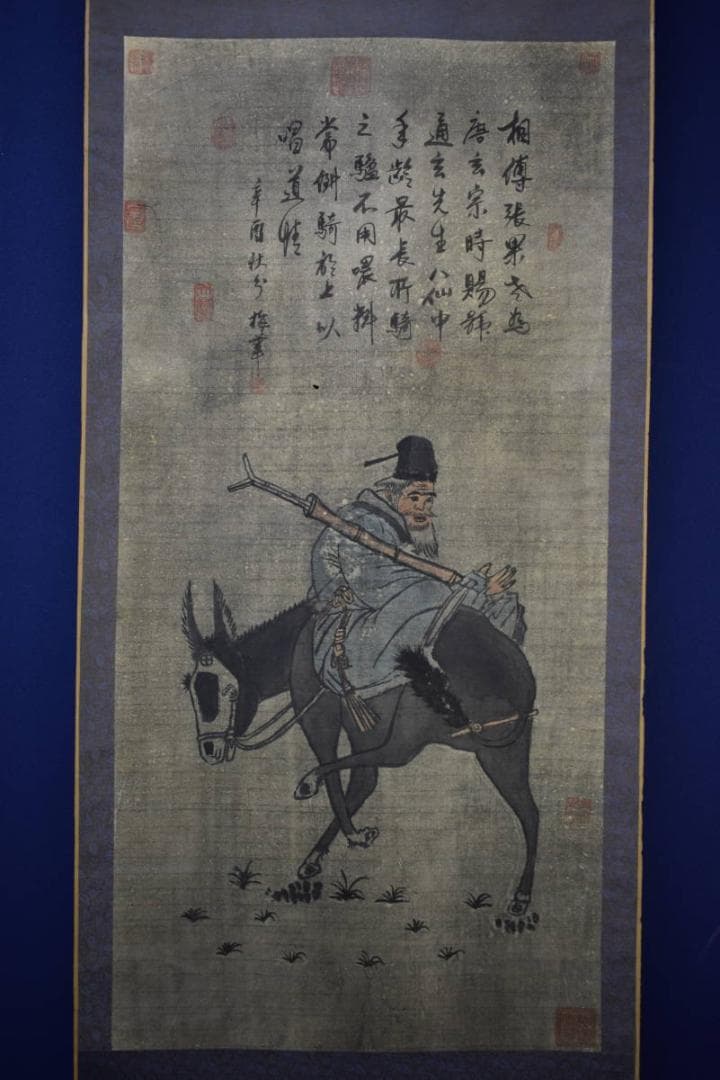 相傳張果老為
唐玄宗時賜號
通玄先生八仙中
年齡最長所騎
之驢不用喂料
常倒騎於上以
唱道情
辛酉秋分梅華